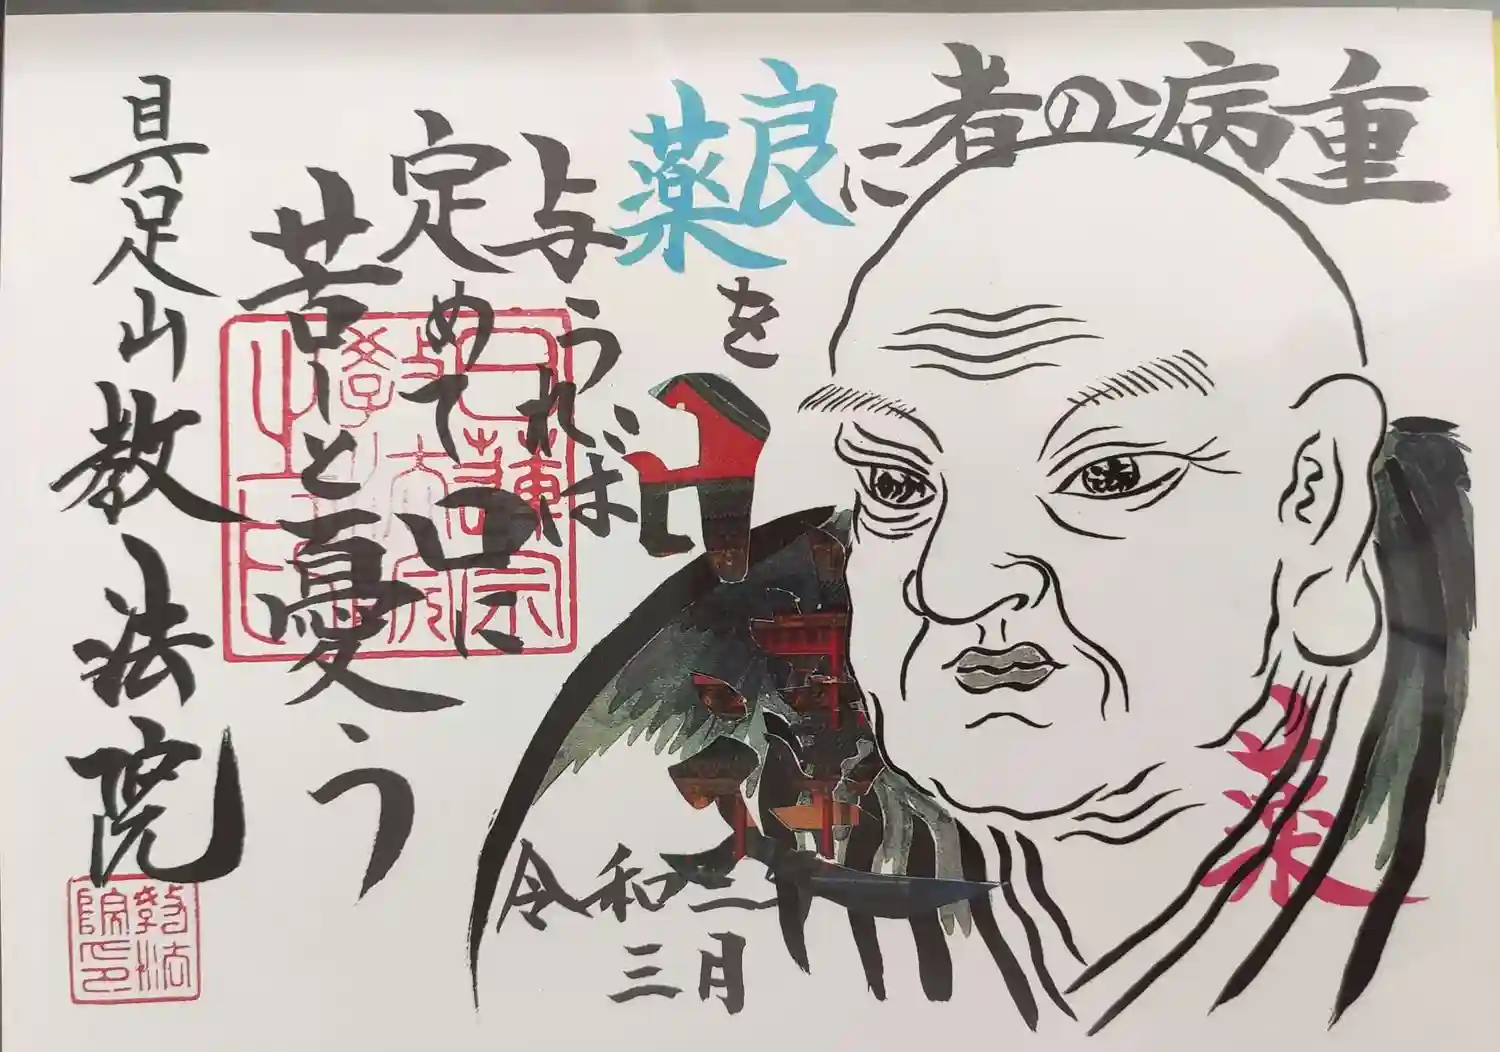 重病の者に
良薬を
与うれば
定めて口に
苦しと憂う
薬
令和三年
三月
具足山教法院
日蓮宗
教法
院印